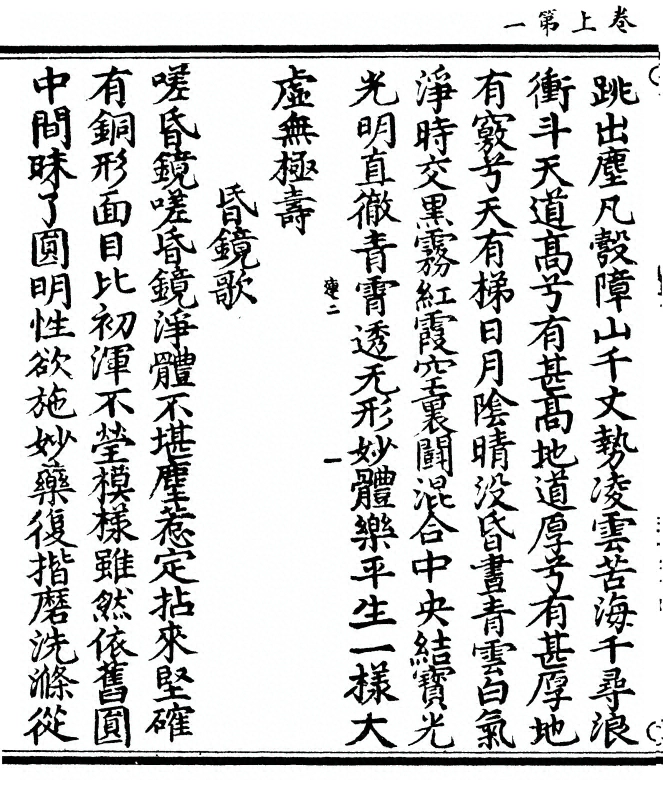 卷上第一
跳出塵凡彀障山千丈勢凌雲苦海千尋浪
衝斗天道高兮有甚高地道厚兮有甚厚地
有竅兮天有梯日月陰晴没昏晝青雲白氣
淨時交黑霧紅霞空裏鬪混合中央結寶光
光明直徹青霄透无形妙體樂平生一樣大
虛無極壽
昏鏡歌
嗟昏鏡嗟昏鏡淨體不堪塵惹定拈來堅確
有銅形面目比初渾不瑩模樣雖然依舊圓
中間昧了圓明性欲施妙藥復揩磨洗滌從
二
一